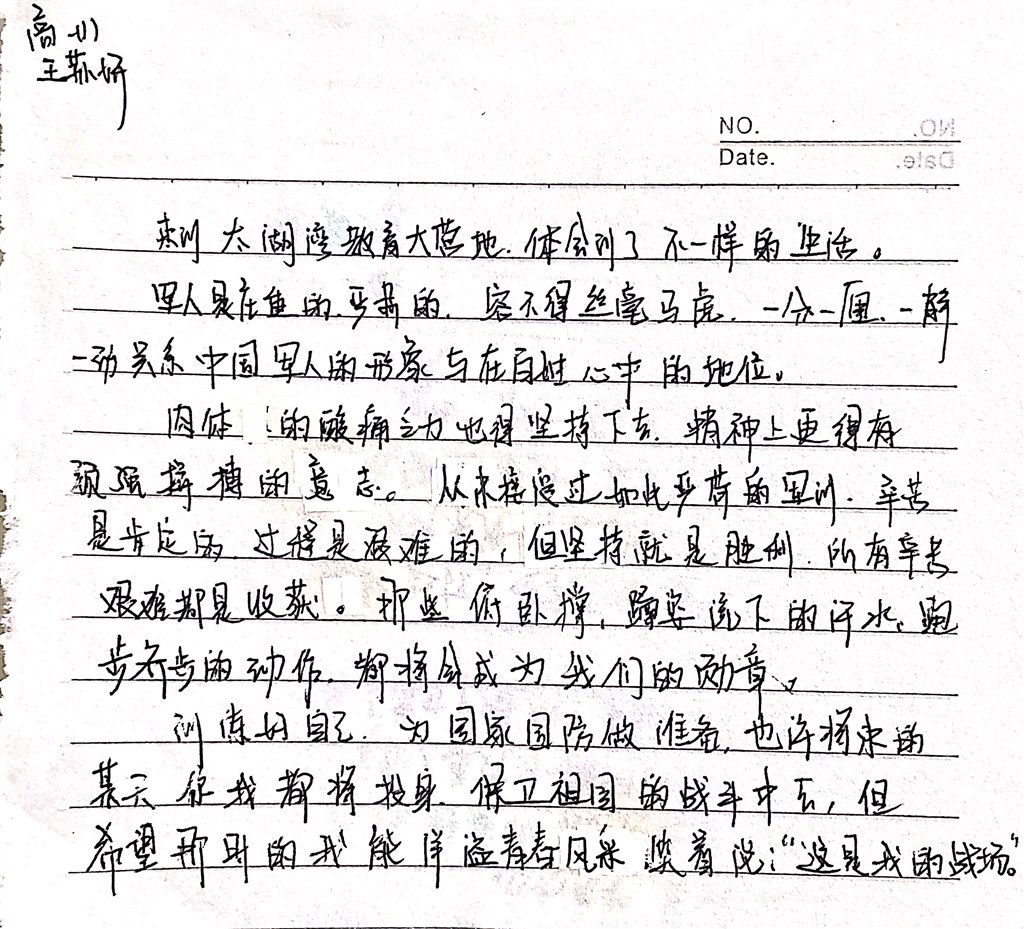 高一(1)
王苏妍
NO.
Date.
来到太湖湾教育大营地，体会到了不一样的生活。
军人是庄重的，严肃的，容不得丝毫马虎，一分一厘、一静
一动关系中国军人的形象与在百姓心中的地位。
肉体的酸痛乏力也得坚持下去，精神上更得有
顽强拼搏的意志。从未接受过如此严苛的军训，辛苦
是肯定的，过程是艰难的，但坚持就是胜利，所有辛苦
艰难都是收获。那些俯卧撑，蹲姿流下的汗水，跑
步齐步的动作，都将会成为我们的勋章。
训练好自己，为国家国防做准备，也许将来的
某天你我都将投身保卫祖国的战斗中去，但
希望那时的我能洋溢青春风采笑着说：“这是我的战场。”